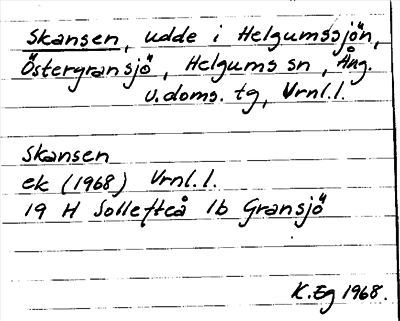 Skansen, udde i Helgumssjön,
Östergransjö, Helgums sn, Ång.
v.doms. tg, Vrnl.l.
Skansen
ek (1968) Vrnl.l.
19 H Sollefteå 1b Gransjö
K.Eg 1968.